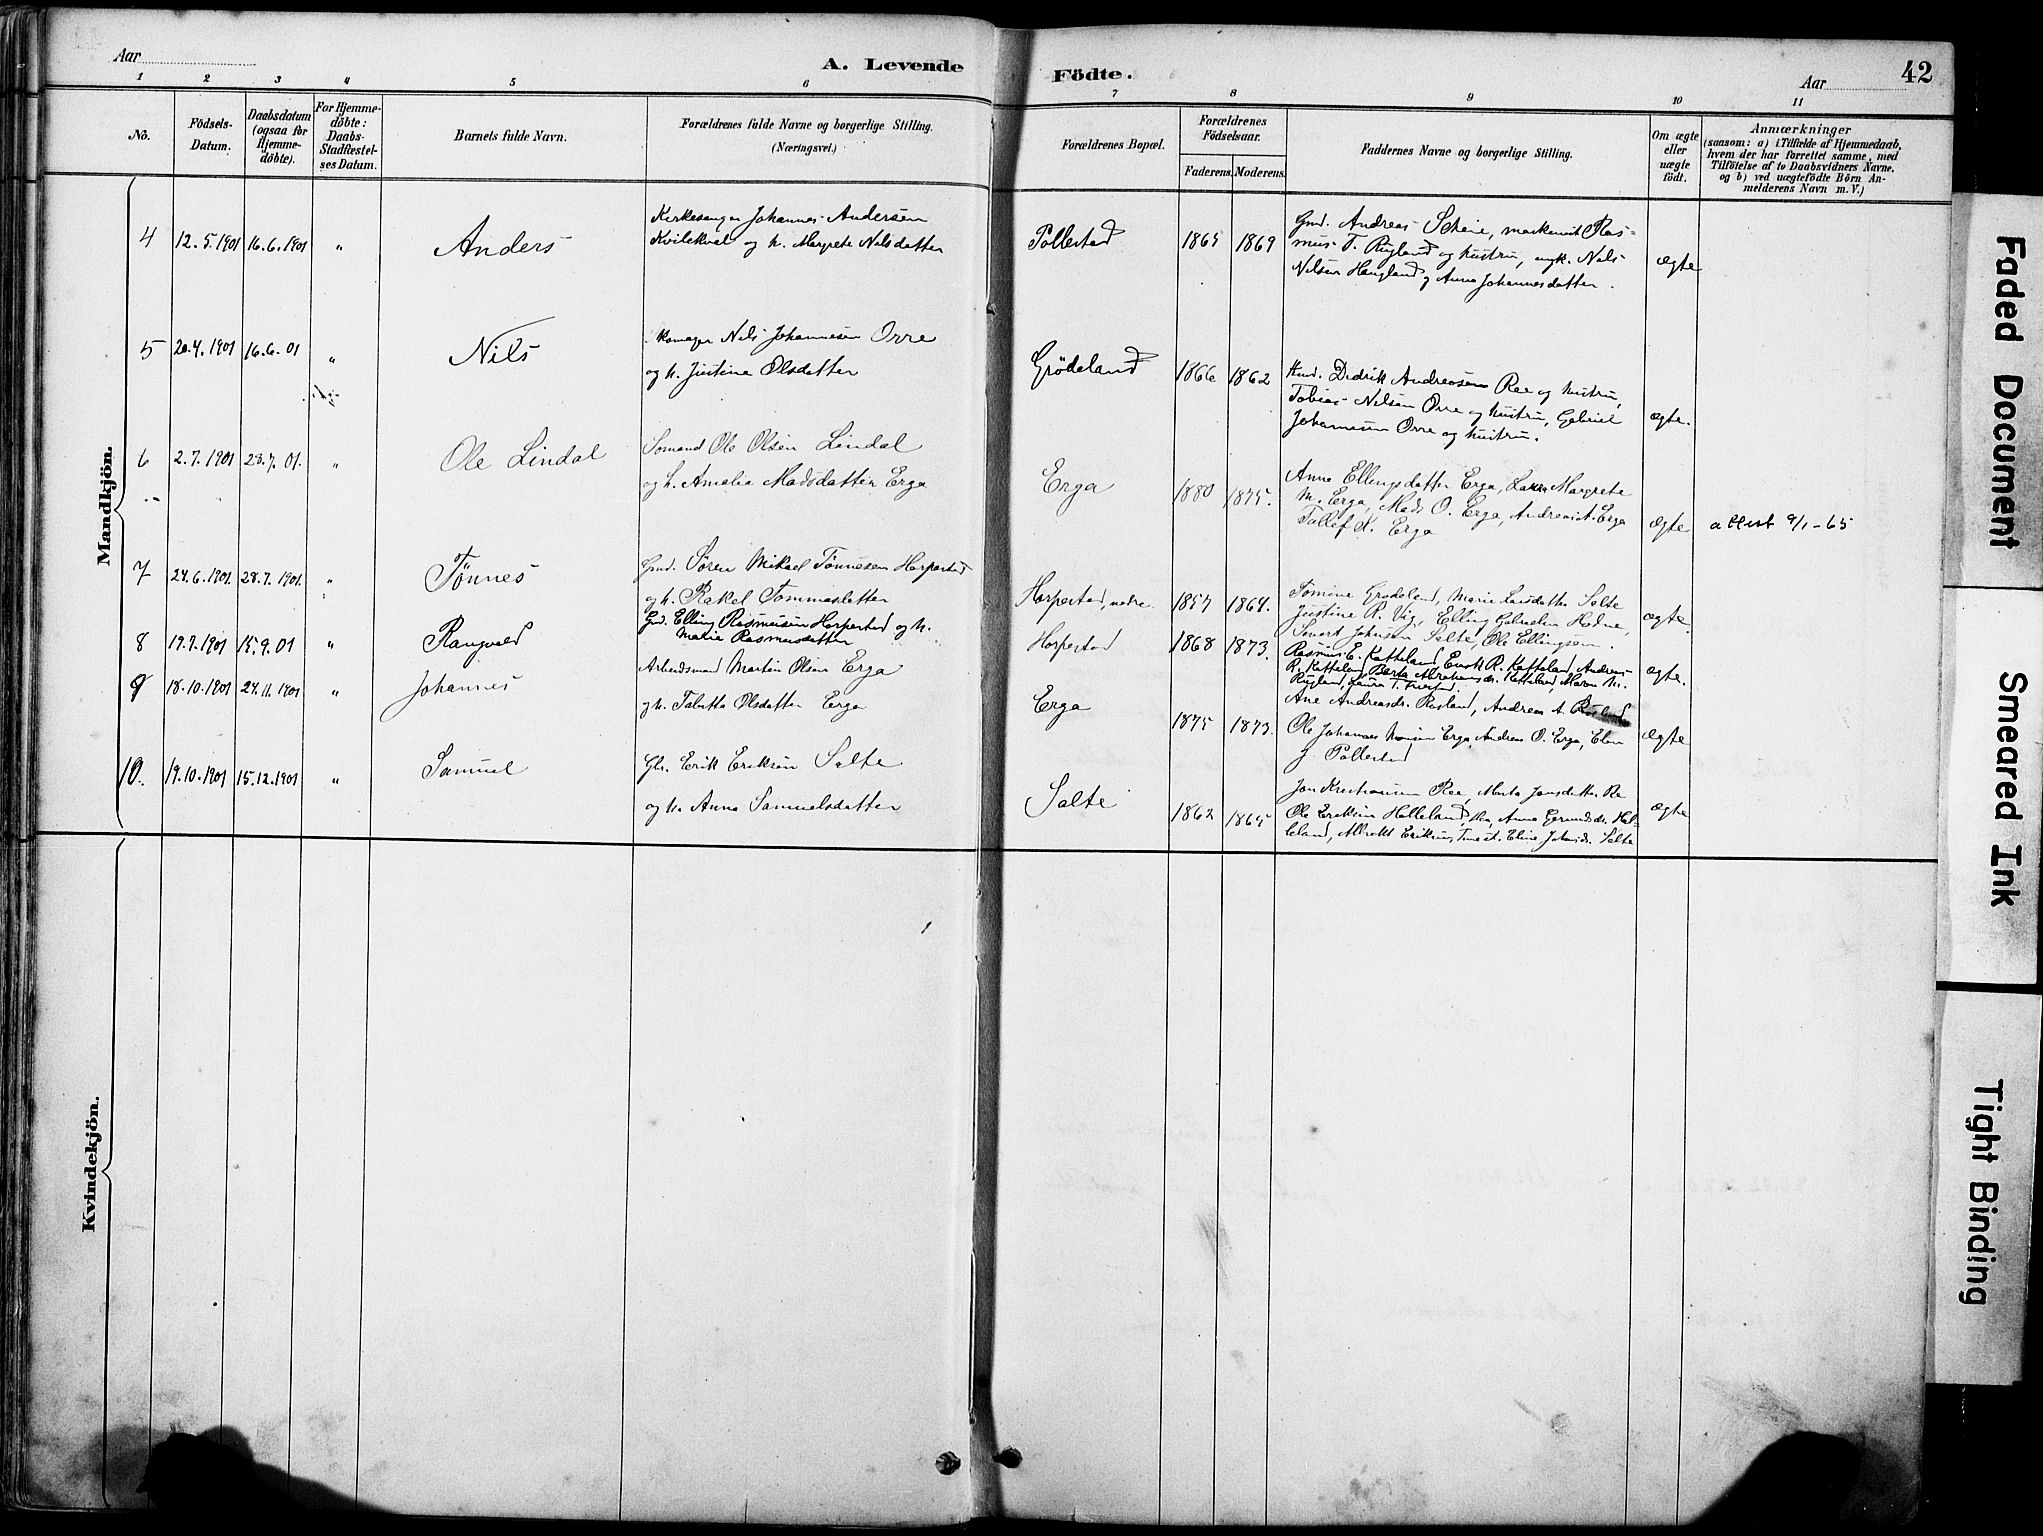 Aar
A. Levende
Födte.
Aar
42
1 2 3 4 5 6 7 8 9 10 11
No.
Födsels-
Datum.
Daabsdatum
(ogsaa for
Hjemme-
döbte).
For Hjemme-
döbte:
Daabs-
Stadfæstel-
ses Datum.
Barnets fulde Navn.
Forældrenes fulde Navne og borgerlige Stilling.
(Næringsvei.)
Forældrenes Bopæl.
Forældrenes
Födselsaar.
Faderens. Moderens.
Faddernes Navne og borgerlige Stilling.
Om ægte
eller
uægte
födt.
Anmærkninger
(saasom: a) i Tilfælde af Hjemmedaab,
hvem der har forrettet samme, med
Tilföielse af to Daabsvidners Navne,
og b) ved uægtefödte Börn An-
melderens Navn m. V.)
Mandkjön.
4 12.5.1901 16.6.1901 " Anders
Kirkesanger Johannes Andersen
Kvilekval og h. Margrete Nilsdatter
Pollestad 1865 1869
Gmd. Andreas Scheie, Ras-
mus T. Rugland og hustru, ungk. Nils
Nilsen Haugland og Anna Johannesdatter.
ægte
5 20.4.1901 16.6.01 " Nils
Nils Johannesen Orre
og h. Justine Olsdatter
Grödeland 1866 1862
Didrik Andreasen Ree og hustru,
Tobias Nilsen Orre og hustru, Gabriel
Johannesen Orre og hustru.
ægte.
6 2.7.1901 28.7.01. " Ole Lindal
Sömand Ole Olsen Lindal
og h. Amalia Madsdatter Erga
Erga 1880 1875.
Anna Ellingsdatter Erga, Lava Margrete
M. Erga, Mads O. Erga, Andreas A. Erga
Tollef N. Erga
ægte
attest 9/1-65
7 24.6.1901. 28.7.1901. " Tönnes
Gmd. Sören Mikael Tönnesen Horpestad
og h. Rakel Tommasdatter
Horpestad, nedre. 1857 1864.
Tomine Grödeland, Marie Larsdatter Salte
Justine R. Vig, Elling Gabrielsen Hodne,
Smart Johnsen Salte, Ole Ellingsen.
ægte.
8 19.7.1901 15.9.01 " Rangvald
Gmd. Elling Rasmusen Horpestad og h.
Malie Rasmusdatter
Horpestad 1868 1873.
Rasmus E. Katteland, Enok R. Katteland, Andreas
R. Katteland, Berta Abrahamsdr. Katteland, Maren M.
Rugland, Laura T.
ægte.
9 18.10.1901 24.11.1901 " Johannes
Arbeidsmand Martin Olsen Erga
og h. Talette Olsdatter Erga
Erga 1875 1873.
Ane Andreasdr. Rugland, Andreas A.
Ole Johannes Monsen Erga, Andreas O. Erga, Elen
J. Pollestad
ægte
10. 19.10.1901 15.12.1901 " Samuel
Gbr. Erik Eriksen Salte
og h. Anna Samuelsdatter
Salte 1862 1865
Jon Kristiansen Ree, Marta Jonsdatter Re
Ole Eriksen Helleland, Anna Gerundsdr. Hel-
leland, Albrekt Eriksen, Eline Johnsdr. Salte
ægte
Kvindekjön.
Faded Document
Smeared Ink
Tight Binding